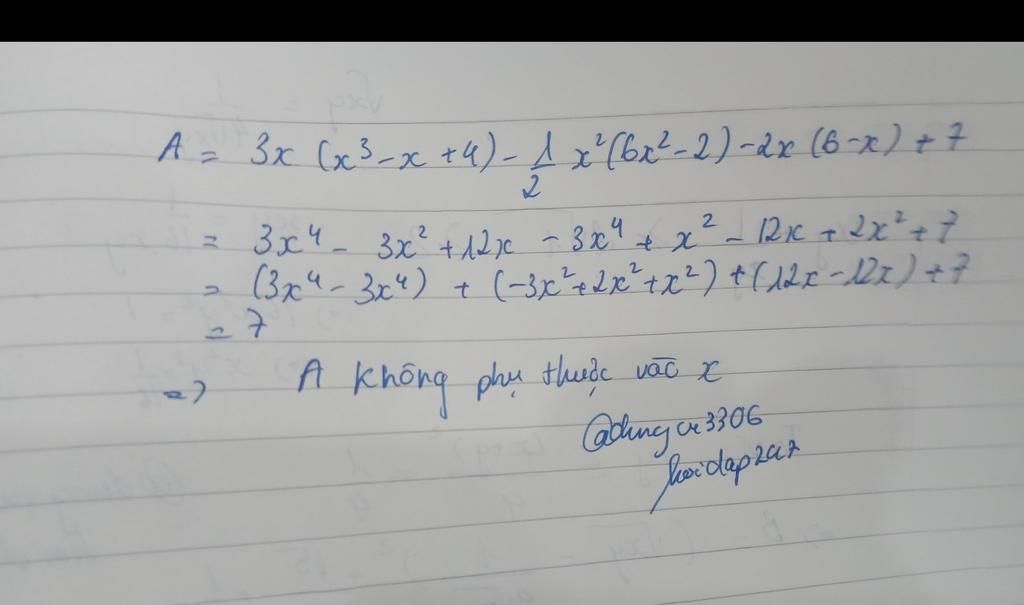 A = 3x (x³ - x + 4) - 1/2 x² (6x² - 2) - 2x (6 - x) + 7
= 3x⁴ - 3x² + 12x - 3x⁴ + x² - 12x + 2x² + 7
= (3x⁴ - 3x⁴) + (-3x² + 2x² + x²) + (12x - 12x) + 7
= 7
=> A không phụ thuộc vào x
hoidap247